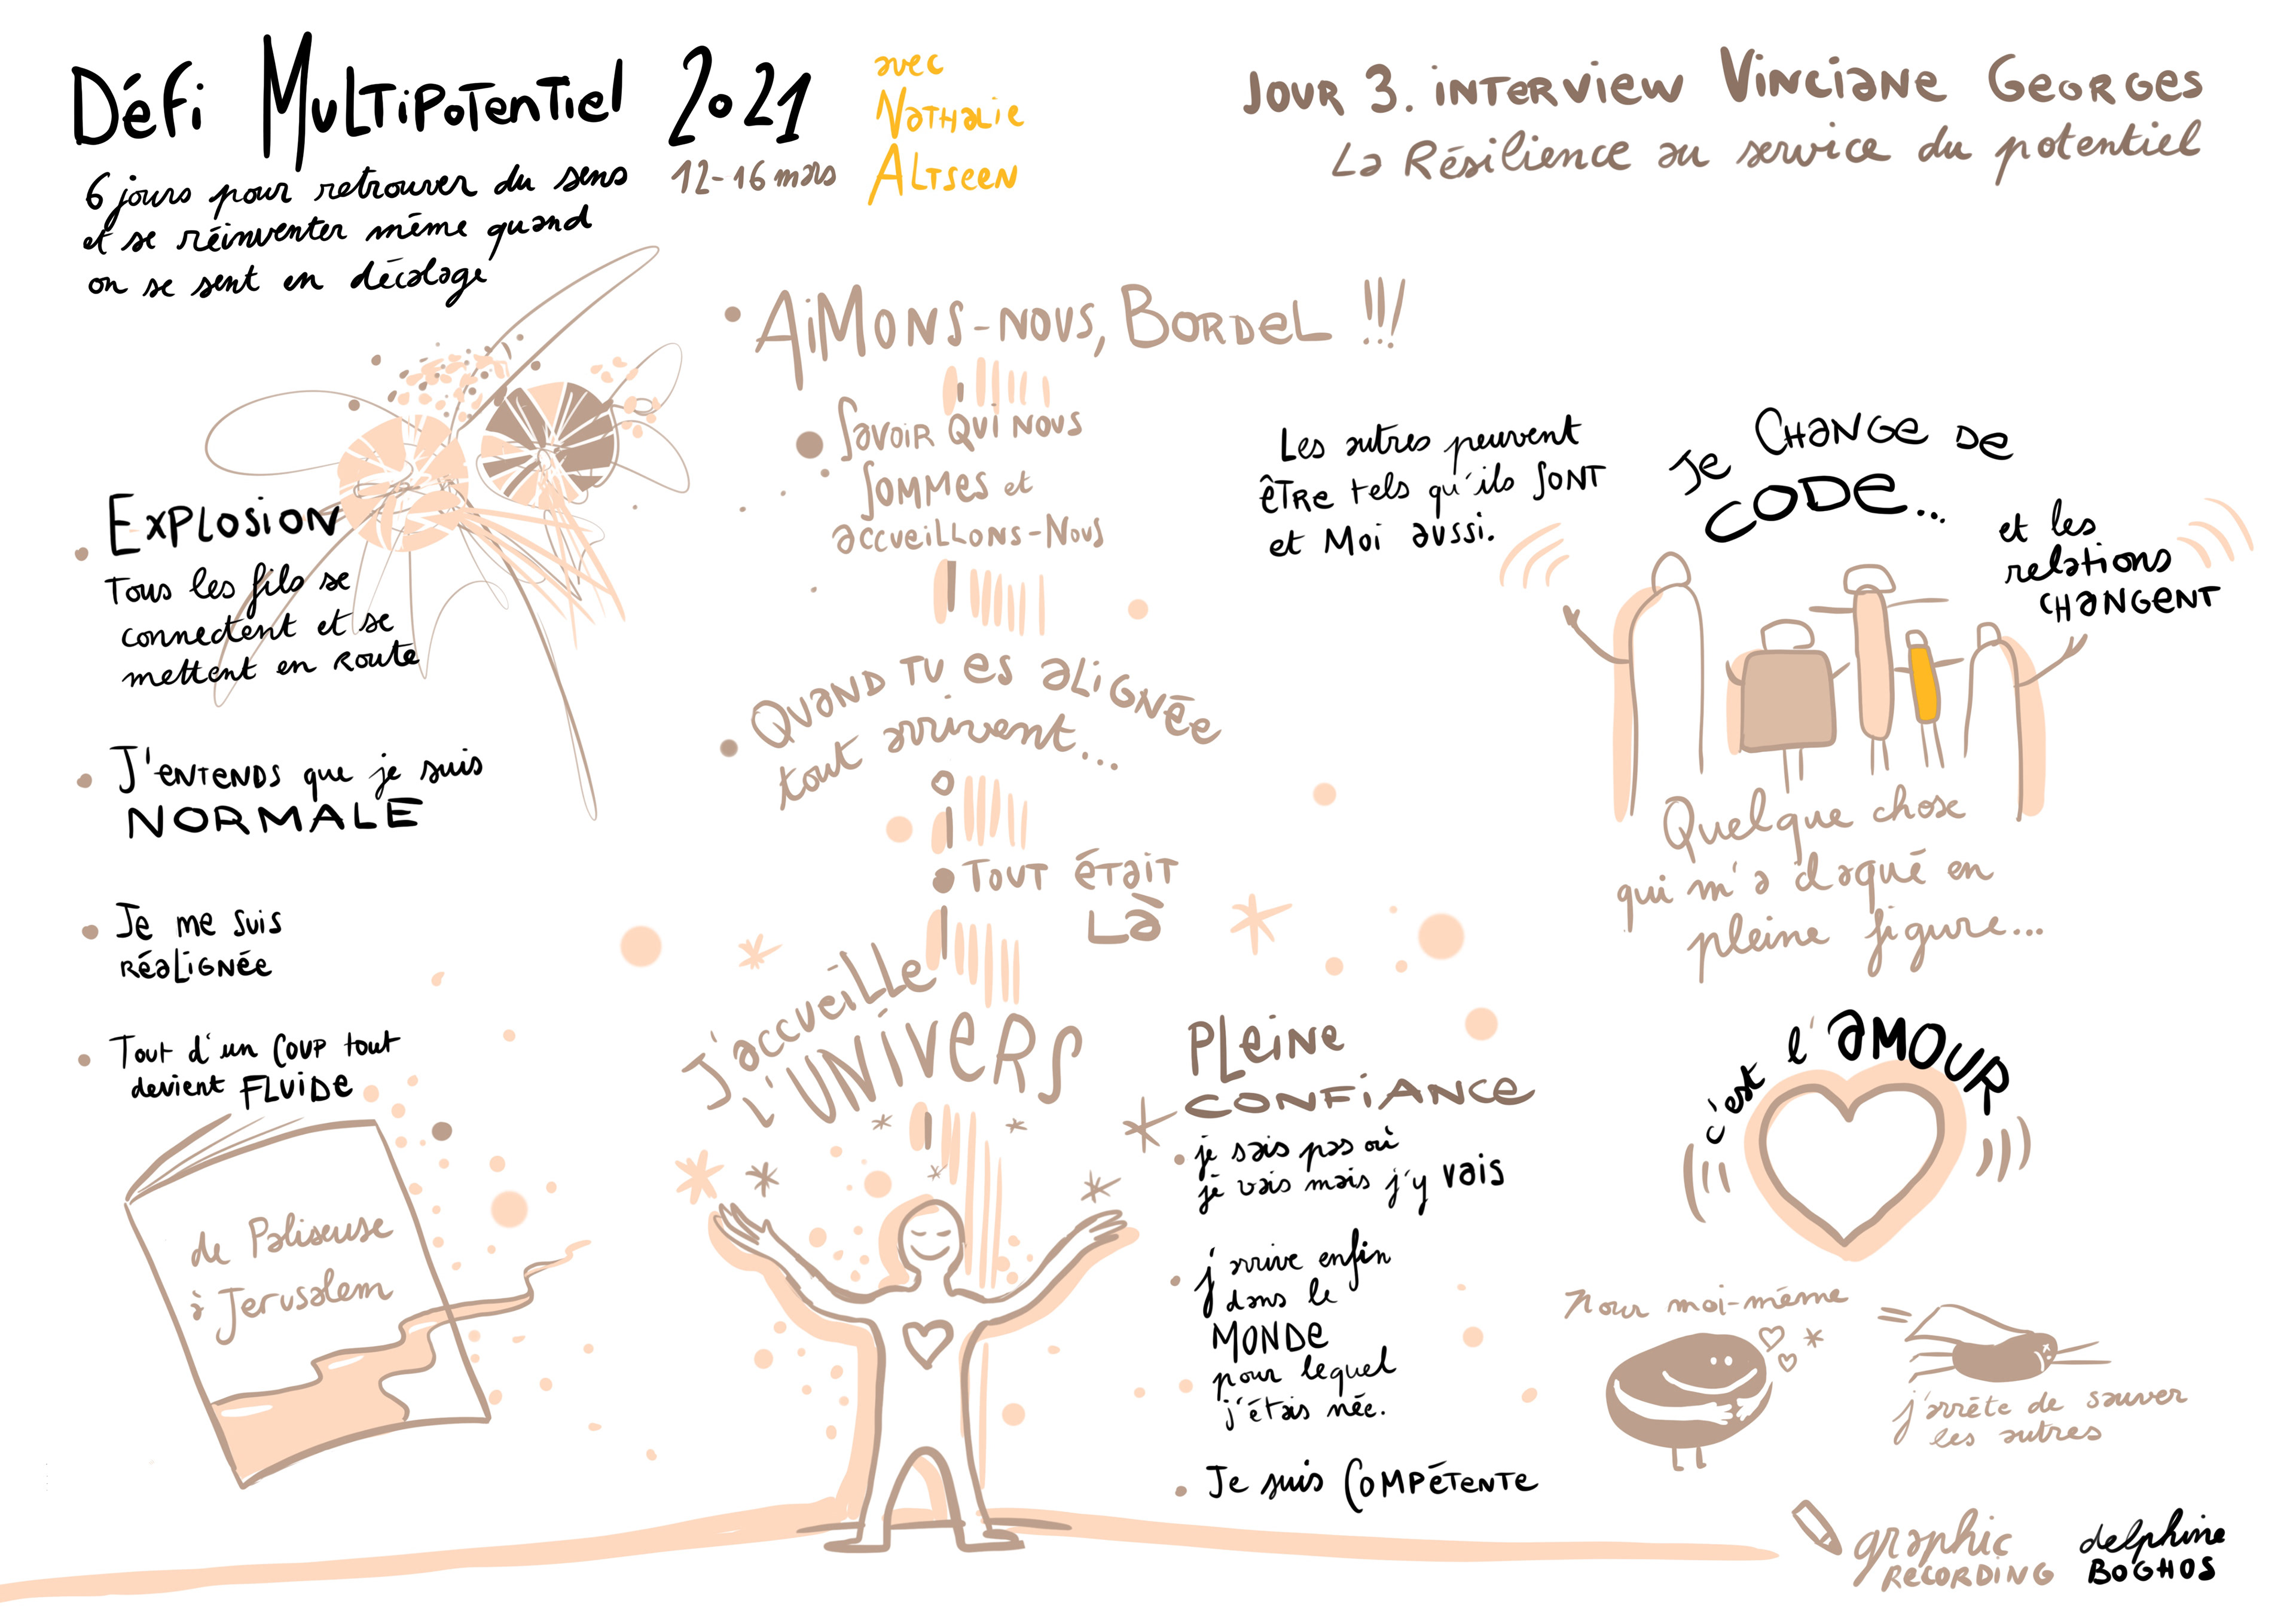 Défi Multipotentiel 2021
12-16 mars
avec
Nathalie
Altseen
6 jours pour retrouver du sens
et se réinventer même quand
on se sent en décalage
Jour 3. interview Vinciane Georges
La Résilience au service du potentiel
• Explosion
Tous les fils se
connectent et se
mettent en route
• J'entends que je suis
NORMALE
• Je me suis
réalignée
• Tout d'un coup tout
devient FLUIDE
de Paliseuse
à Jerusalem
• Aimons-nous, Bordel !!!
• Savoir qui nous
sommes et
accueillons-nous
• Quand tu es alignée
tout arrivent...
• Tout était
là
J'accueille
l'UNIVERS
Pleine
confiance
• je sais pas où
je vais mais j'y vais
• j'arrive enfin
dans le
MONDE
pour lequel
j'étais née.
• Je suis Compétente
Les autres peuvent
être tels qu'ils sont
et Moi aussi.
Je change de
code...
et les
relations
changent
Quelque chose
qui m'a claqué en
pleine figure...
c'est l'amour
Pour moi-même
j'arrête de sauver
les autres
graphic
recording
delphine
Boghos